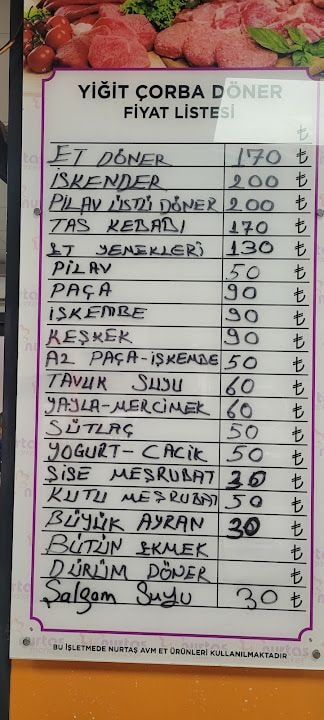 YİĞİT ÇORBA DÖNER
FİYAT LİSTESİ
₺
ET DÖNER 170 ₺
İSKENDER 200 ₺
PİLAV ÜSTÜ DÖNER 200 ₺
TAS KEBABI 170 ₺
ET YEMEKLERİ 130 ₺
PİLAV 50 ₺
PAÇA 90 ₺
İŞKEMBE 90 ₺
KEŞKEK 90 ₺
AZ PAÇA-İŞKEMBE 50 ₺
TAVUK SUYU 60 ₺
YAYLA-MERCİMEK 60 ₺
SÜTLAÇ 50 ₺
YOGURT-CACIK 50 ₺
ŞİŞE MEŞRUBAT 30 ₺
KUTU MEŞRUBAT 50 ₺
BÜYÜK AYRAN 30 ₺
BÜTÜN EKMEK ₺
DÜRÜM DÖNER ₺
Şalgam Suyu 30 ₺
nurtaş
BU İŞLETMEDE NURTAŞ AVM ET ÜRÜNLERİ KULLANILMAKTADIR